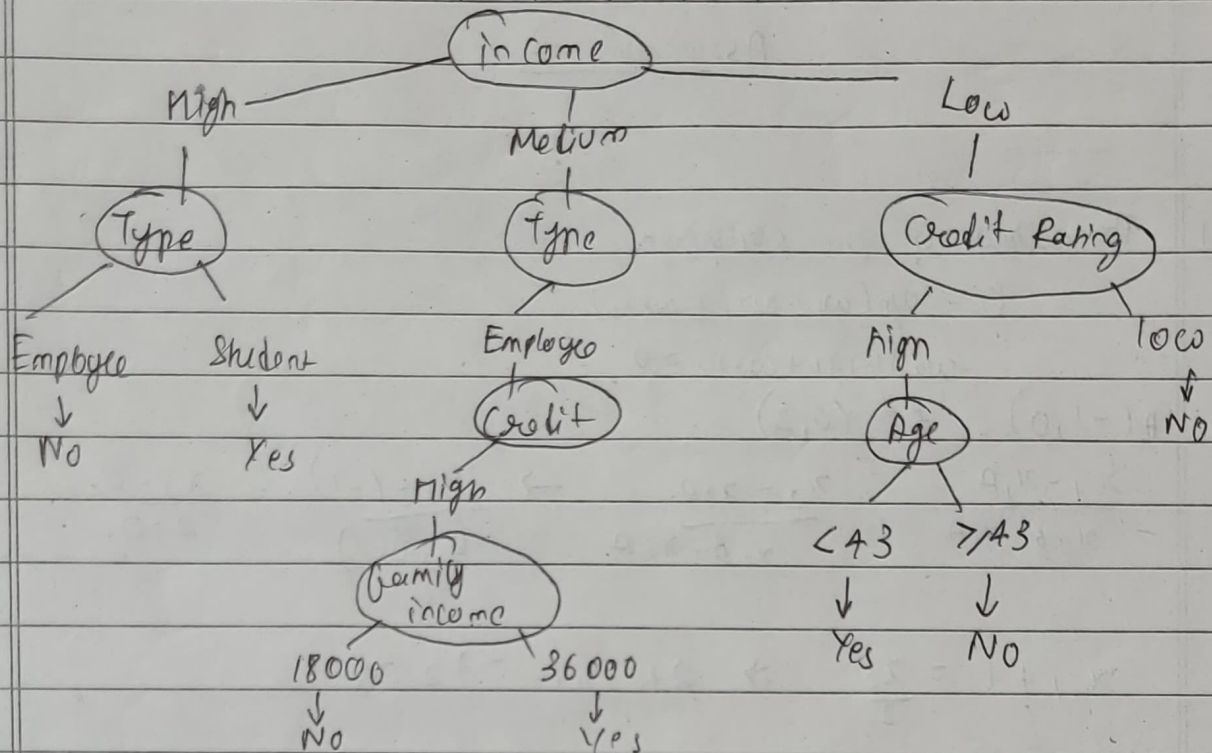 income
High Medium Low
Type Type Credit Rating
Employee Student Employee High low
No Yes Credit Age No
High <43 ≥43
family income Yes No
18000 36000
No Yes